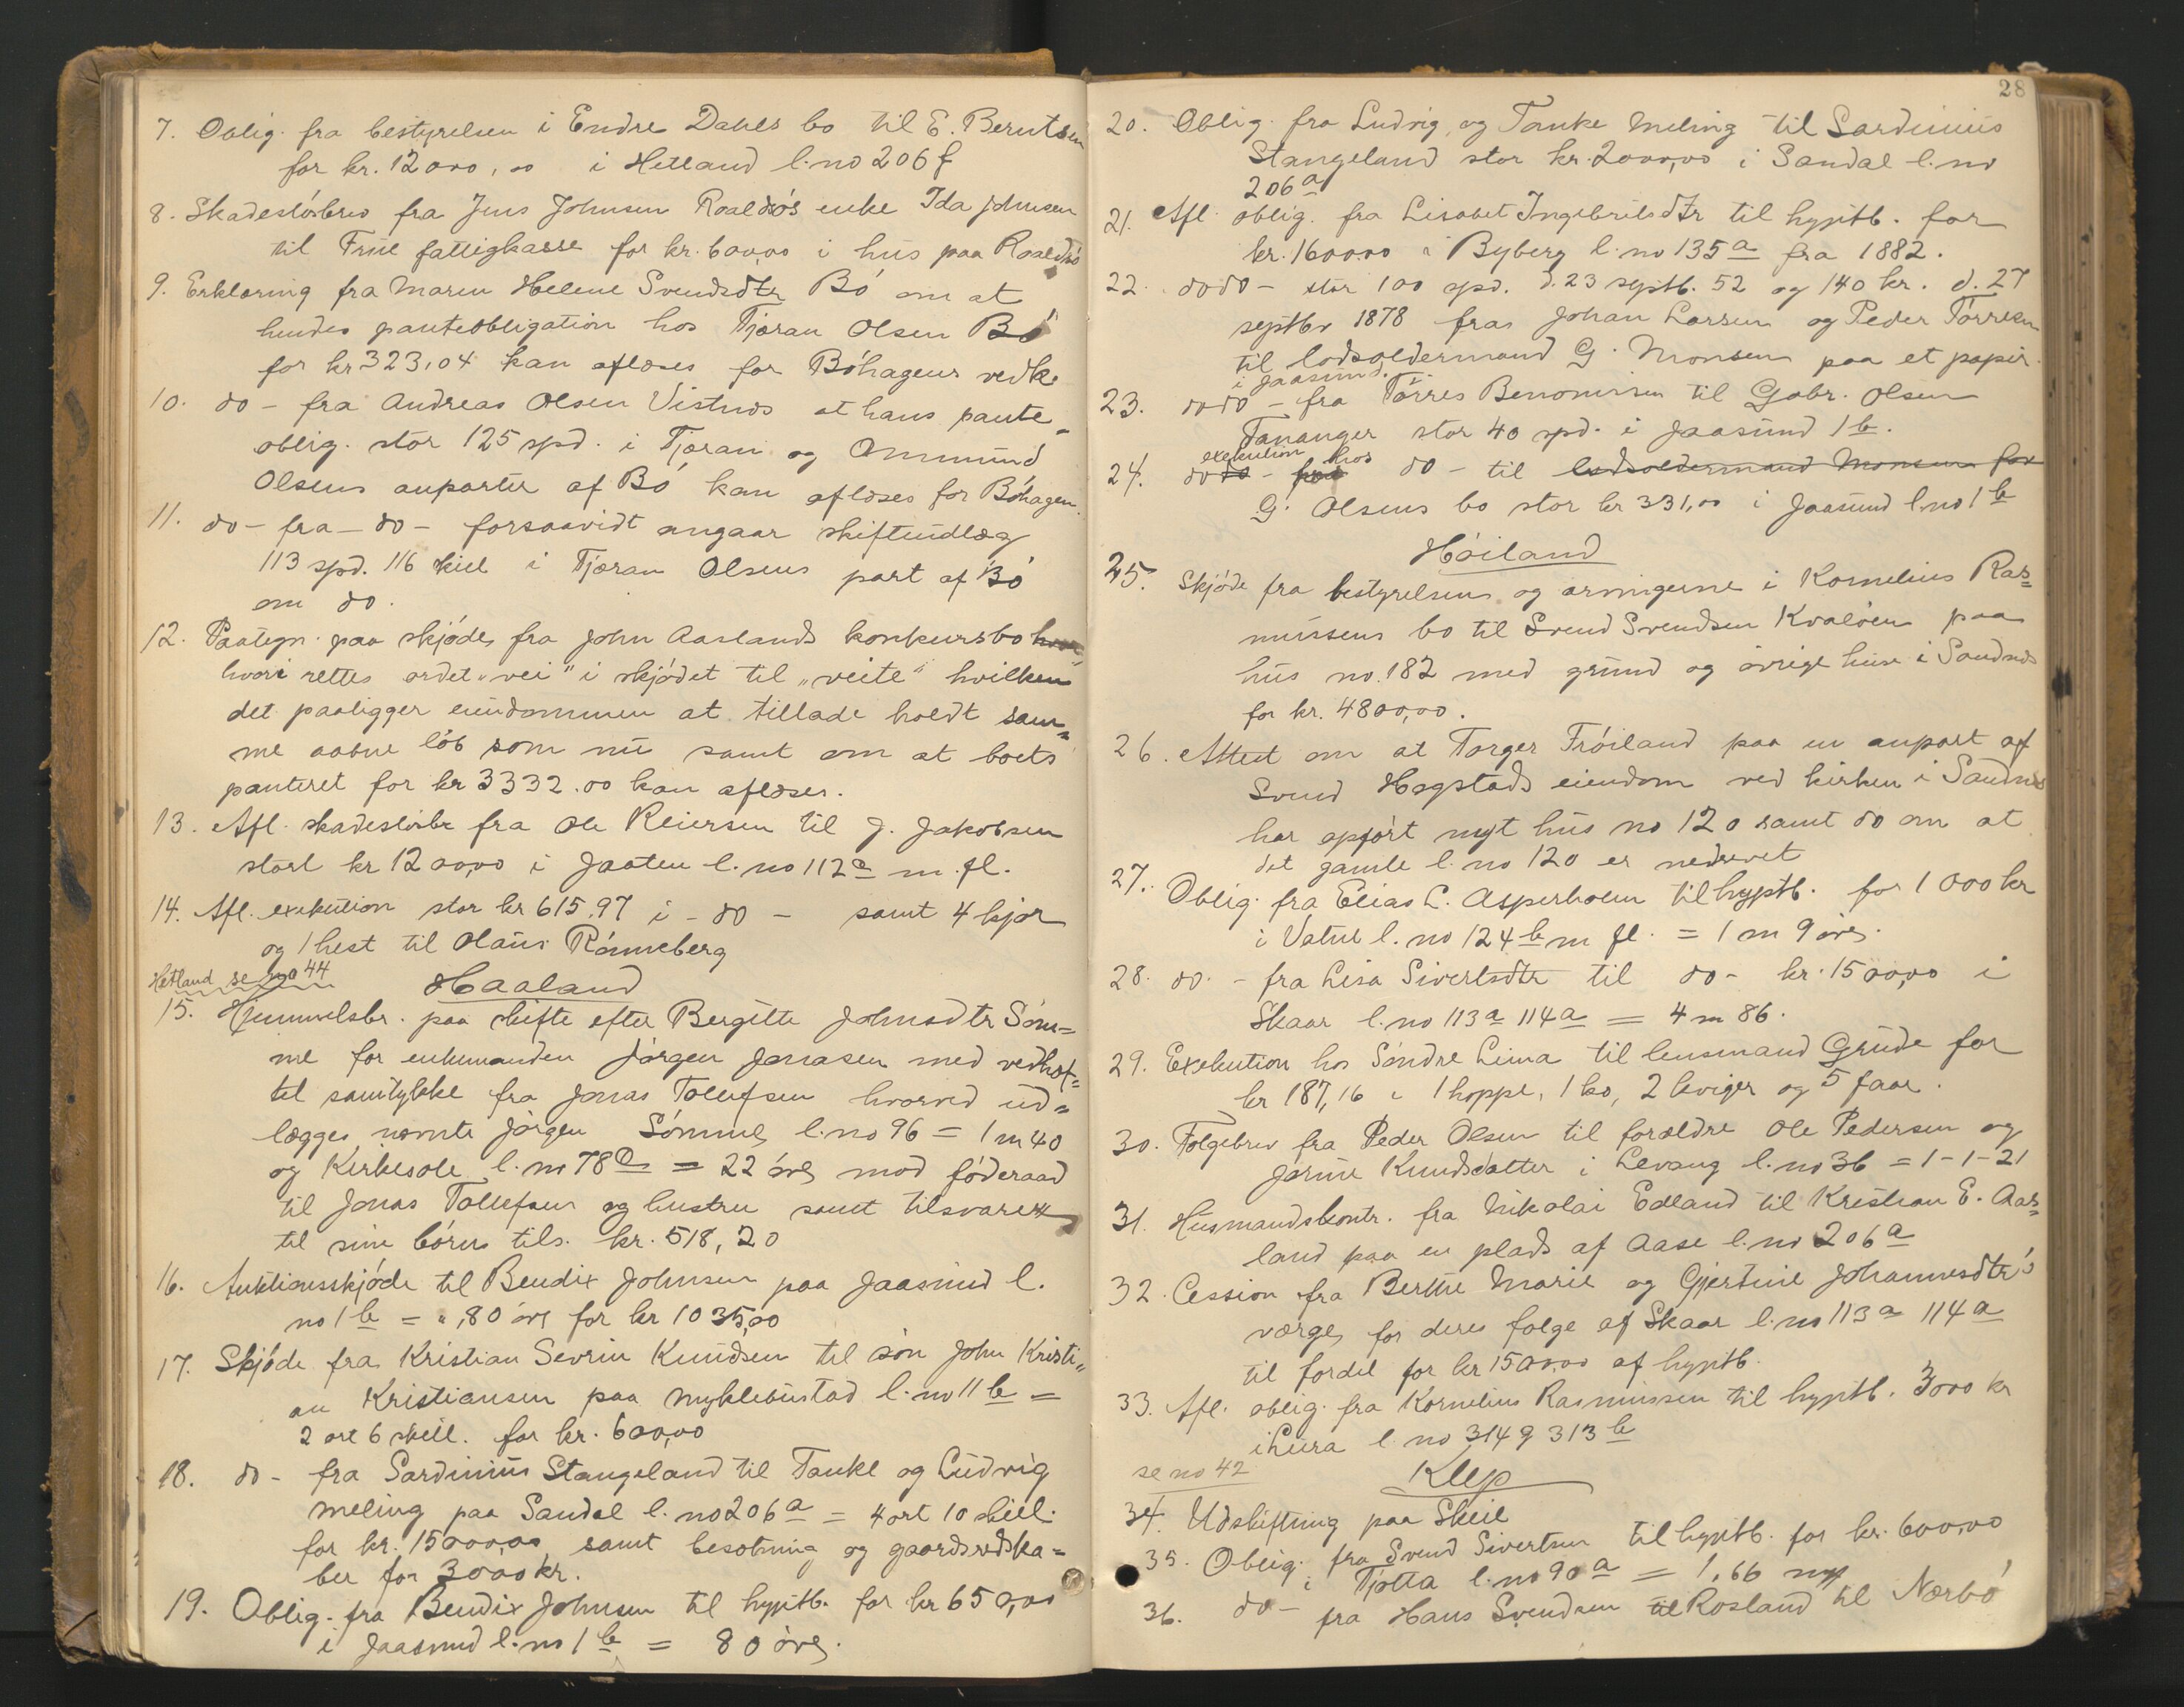 7. Oblig. fra bestyrelsen i Endre Dahls bo til E. Berntsen
for kr. 12000,00 i Hetland l.no 206 f
8. Skadesløsbrev fra Jens Johnsen Roaldsøs enke Ida Johnsen
til Frue fattigkasse for kr. 600,00 i hus paa Roaldsø
9. Erklæring fra Maren Helene Svendsdtr Bø om at
hendes panteobligation hos Tjæran Olsen Bø
for kr 323,04 kan aflæses for Bøhagens vedk.
10. do - fra Andreas Olsen Vistnæs at hans pante=
oblig. stor 125 spd. i Tjæran og Ommund
Olsens anparter af Bø kan aflæses for Bøhagen.
11. do - fra - do - forsaavidt angaar skifteudlæg
113 spd. 116 skil i Tjæran Olsens part af Bø
om do.
12. Paategn. paa skjøde fra John Aaslands konkursbo
hvori rettes ordet "vei" i skjødet til "veite" hvilken
det paaligger eiendommen at tillade holdt sam=
me aabne løb som nu samt om at boets
panteret for kr 3332.00 kan aflæses.
13. Afl. skadesløsbr fra Ole Reiersen til J. Jakobsen
stort kr 1200,00 i Jaaten l.no 112 a m. fl.
14. Afl. exekution stor kr 615,97 i - do - samt 4 kjør
og 1 hest til Olaus Rønneberg
Hetland se no 44
Haaland
15. Hjemmelsbr. paa skifte efter Bergitte Johnsdtr Søm=
me for enkemanden Jørgen Jonasen med vedhæf=
tet samtykke fra Jonas Tollefsen hvorved ud=
lægges nævnte Jørgen Sømme l.no 96 = 1 m 40
og Kirkesole l.no 78 = 22 øre mod føderaad
til Jonas Tollefsen og hustru samt tilsvarer
til sine børn tils. kr. 518,20
16. Auktionsskjøde til Bendix Johnsen paa Jaasund l.
no 1 b = ",80 øre for kr 1035,00
17. Skjøde fra Kristian Sevrin Knudsen til søn John Kristi=
an Kristiansen paa Myklebustad l.no 11 b =
2 ort 6 skill. for kr. 600,00
18. do - fra Sardinius Stangeland til Tanke og Ludvig
Meling paa Sandal l.no 206 a = 4 ort 10 skill.
for kr. 15000,00 samt besætning og gaardsredska=
ber for 3000 kr.
19. Oblig. fra Bendix Johnsen til hyptb. for kr 650,00
i Jaasund l.no 1 b = 80 øre.
28
20. Oblig. fra Ludvig og Tanke Meling til Sardinius
Stangeland stor kr. 2000,00 i Sandal l.no
206 a
21. Afl. oblig. fra Lisabet Ingebrilsdtr til hyptb. for
kr. 1600,00 i Byberg l.no 135 a fra 1882.
22. do do - stor 100 spd. d. 23 septb. 52 og 140 kr. d. 27
septbr 1878 fra Johan Larsen og Peder Tørresen
til lodsoldermand G. Monsen paa et papir.
i Jaasund.
23. do do - fra Tørres Benonisen til Gabr. Olsen
Tananger stor 40 spd. i Jaasund 1 b.
24. do do - exekution fra hos do - til lodsoldermand Monsen for
G. Olsens bo stor kr 331,00 i Jaasund l.no 1 b
Høiland
25. Skjøde fra bestyrelsen og arvingerne i Kornelius Ras=
mussens bo til Svend Svendsen Kvaløen paa
hus no. 182 med grund og øvrige huse i Sandnæs
for kr. 4800,00.
26. Attest om at Torger Frøiland paa en anpart af
Svend Hogstads eiendom ved kirken i Sandnæs
har opført nyt hus no 120 samt do om at
det gamle l.no 120 er nedrevet
27. Oblig. fra Elias L. Asperholm til hyptb. for 1000 kr
i Vatne l.no 124 b m fl. = 1 m 9 øre.
28. do. - fra Lisa Sivertsdtr til do - kr. 1500,00 i
Skaar l.no 113 a 114 a = 4 m 86.
29. Exekution hos Søndre Lima til lensmand Grude for
kr 187,16 i 1 hoppe, 1 ko, 2 kviger og 5 faar.
30. Følgebrev fra Peder Olsen til forældre Ole Pedersen og
Jorine Knudsdatter i Levang l.no 36 = 1-1-21
31. Husmandskontr. fra Nikolai Edland til Kristian E. Aas=
land paa en plads af Aase l.no 206 a
32. Cession fra Berthe Marie og Gjertine Johannesdtr's
værge for deres følge af Skaar l.no 113 a 114 a
til fordel for kr 1500,00 af hyptb.
33. Afl. oblig. fra Kornelius Rasmussen til hyptb. 3000 kr
i Lura l.no 314 g 313 b
se no 42
Klep
34. Udskiftning paa Skeie
35. Oblig. fra Svend Sivertsen til hyptb. for kr. 600,00
i Tjøtta l.no 90 a = 1,66 ny
36. do - fra Hans Svendsen til Rosland til Nærbø